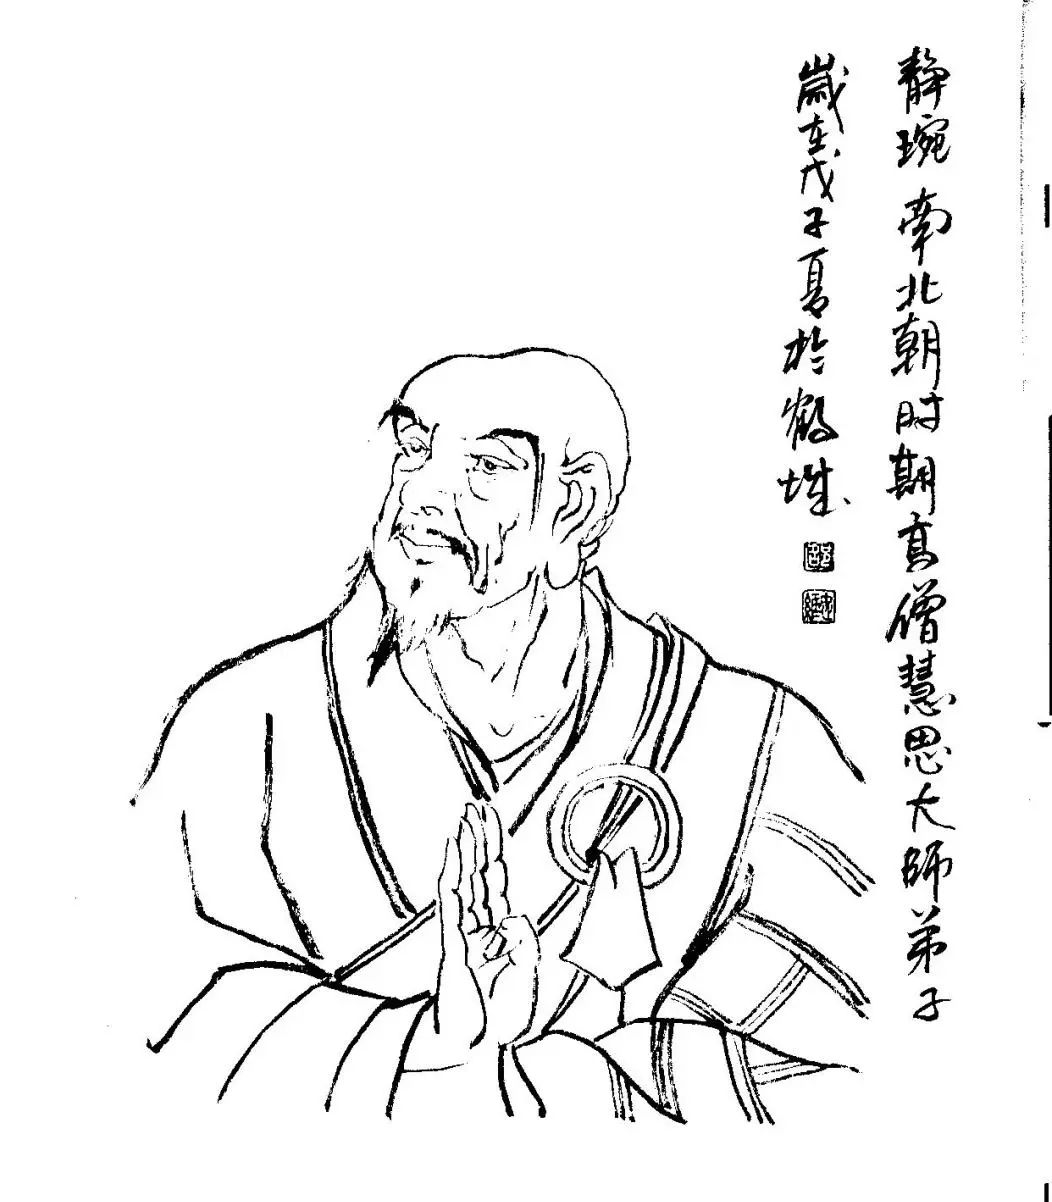 静琬南北朝时期高僧慧思大师弟子
歲在戊子夏於鹤城